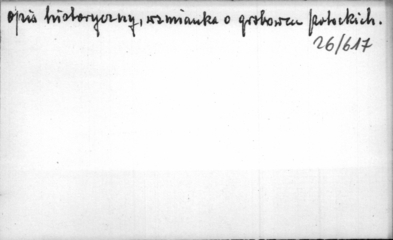 opis historyczny, wzmianka o grobowcu potockich.
26/617